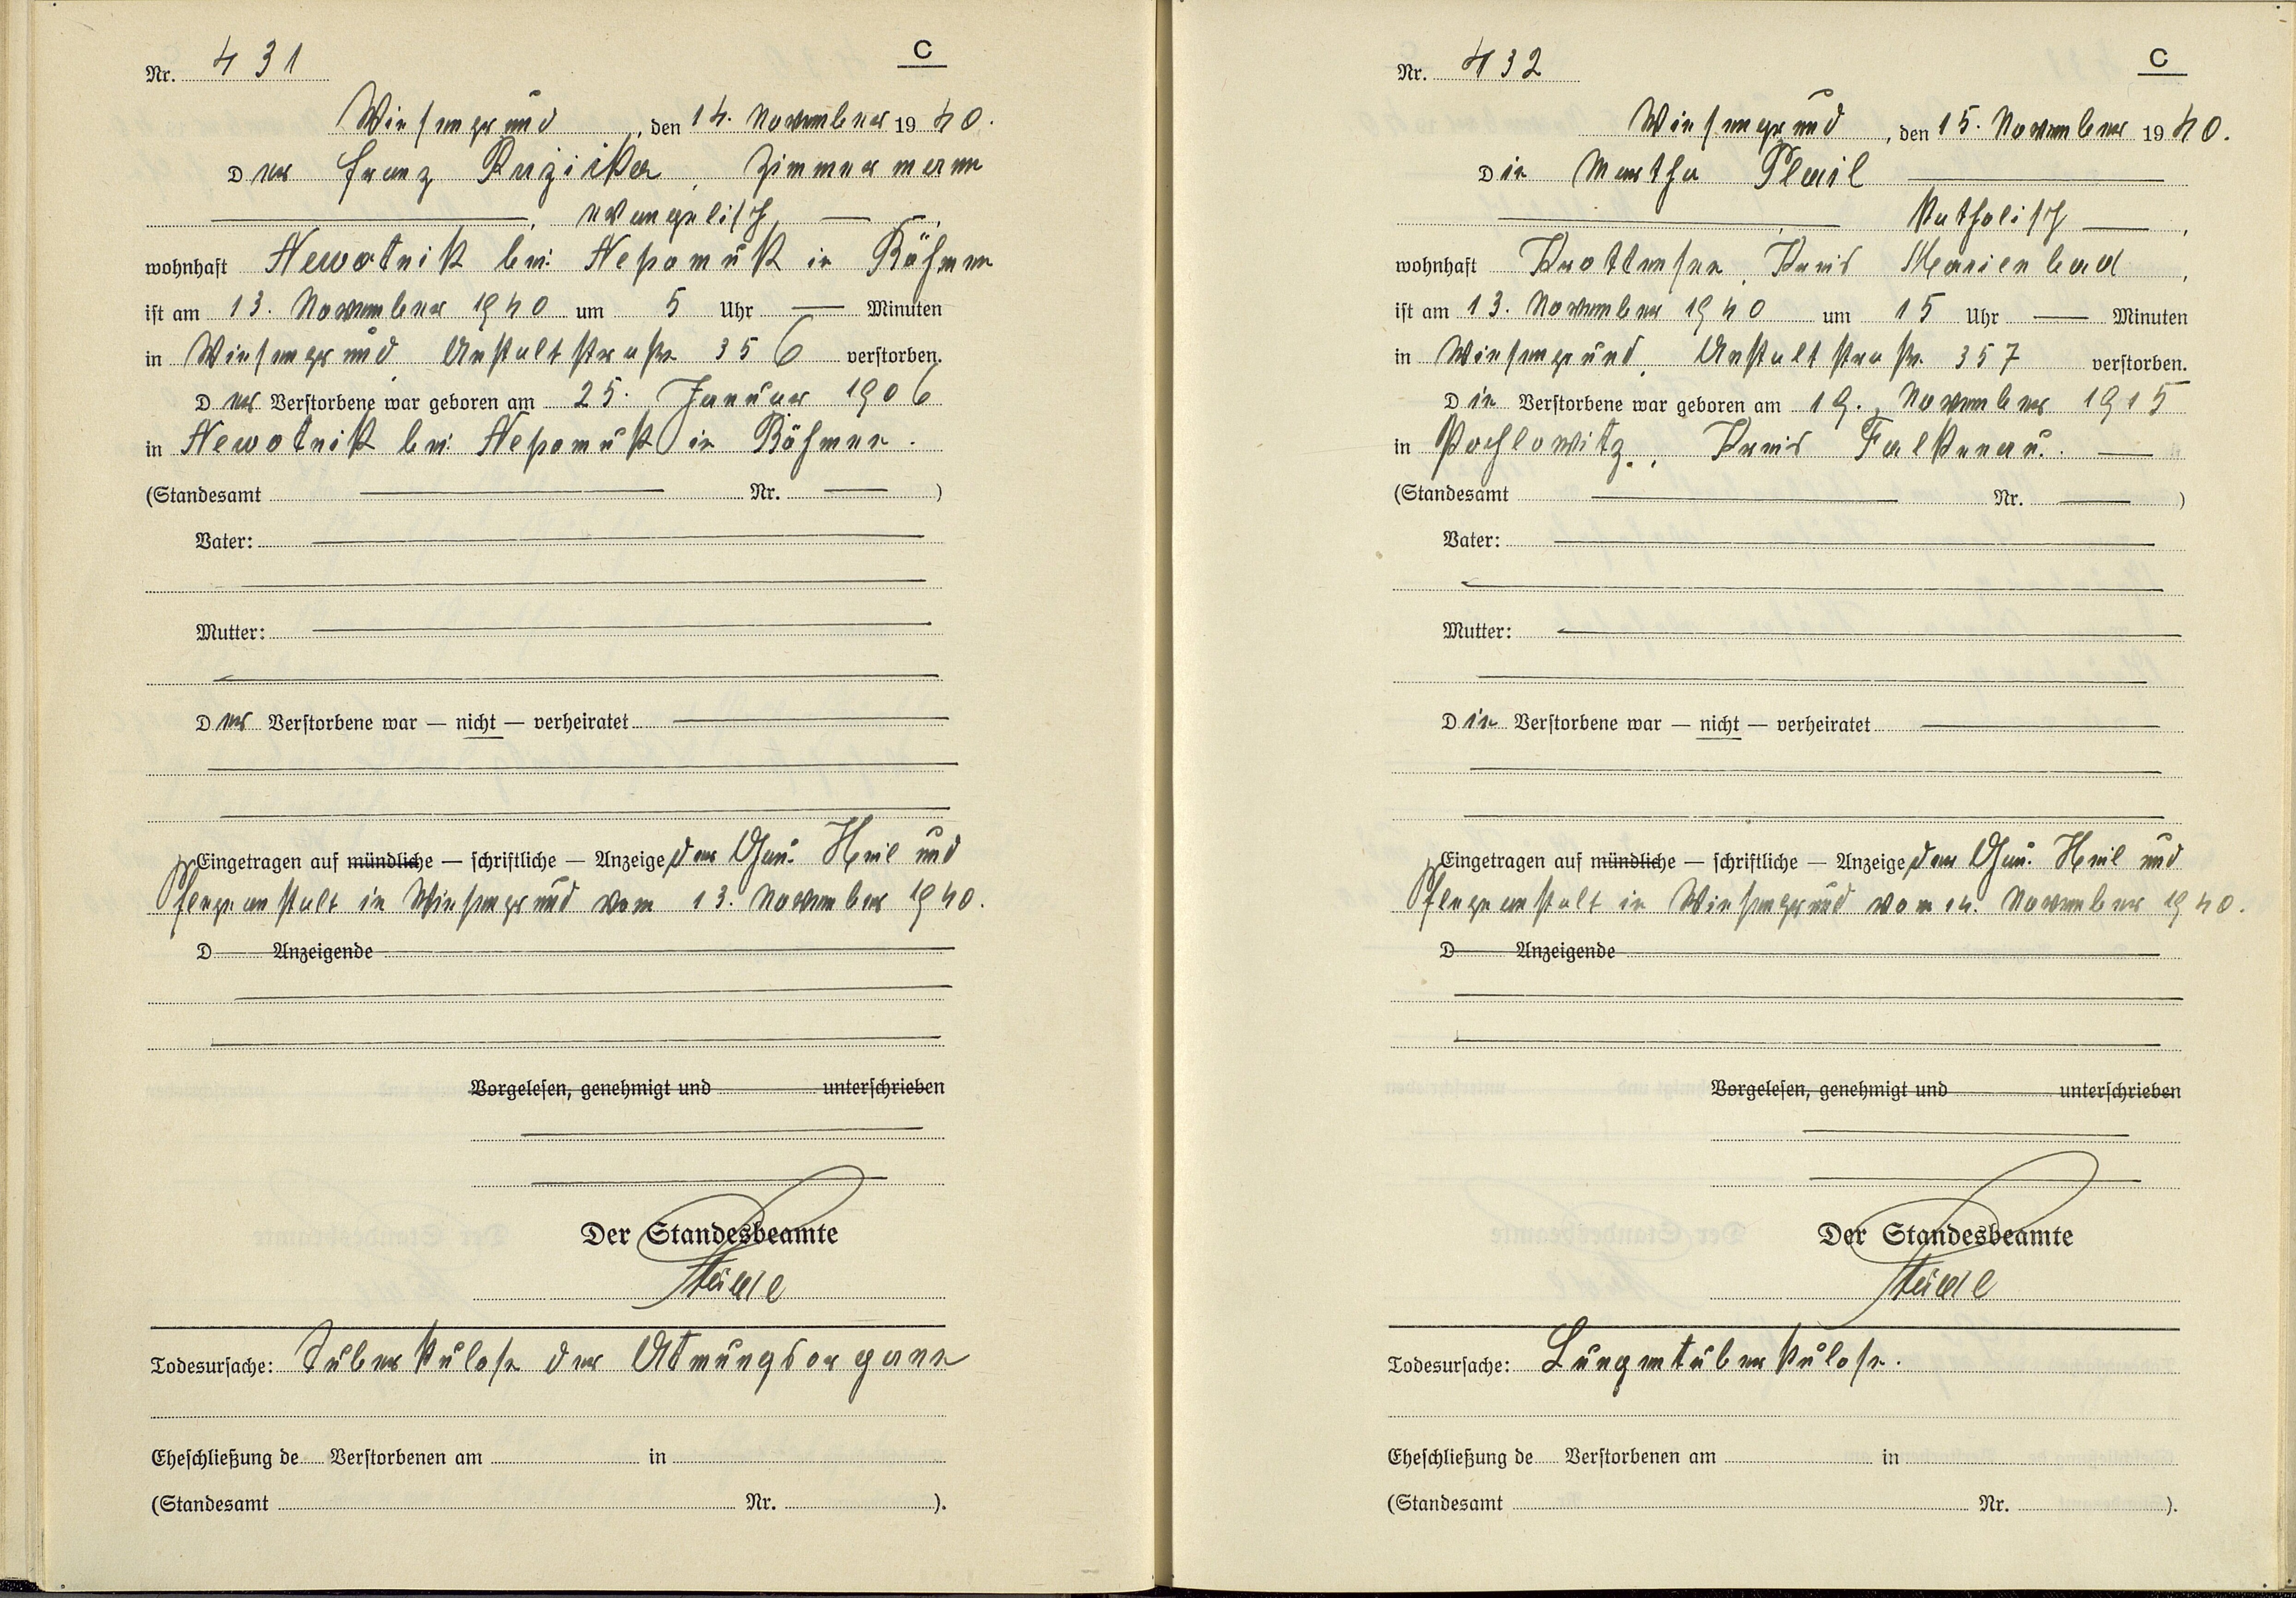 Nr. 431
C
Wiesengrund, den 14. November 1940.
Der Franz Ruzicka, Zimmermann
, evangelisch,
wohnhaft Newotnik bei Nepomuk in Böhmen
ist am 13. November 1940 um 5 Uhr — Minuten
in Wiesengrund, Anstaltstraße 356 verstorben.
Der Verstorbene war geboren am 25. Januar 1906
in Newotnik bei Nepomuk in Böhmen.
(Standesamt — Nr. — )
Vater: —
Mutter: —
Der Verstorbene war — nicht — verheiratet
Eingetragen auf mündliche — schriftliche — Anzeige der Gau: Heil und
Pflegeanstalt in Wiesengrund vom 13. November 1940.
D Anzeigende
Vorgelesen, genehmigt und unterschrieben
Der Standesbeamte
Todesursache: Tuberkulose der Atmungsorgane
Eheschließung de Verstorbenen am in
(Standesamt Nr. ).
Nr. 432
C
Wiesengrund, den 15. November 1940.
Die Martha Plail
, katholisch,
wohnhaft Krottensee, Kreis Marienbad,
ist am 13. November 1940 um 15 Uhr — Minuten
in Wiesengrund, Anstaltstraße 357 verstorben.
Die Verstorbene war geboren am 19. November 1915
in Pochlowitz, Kreis Falkenau. —
(Standesamt — Nr. — )
Vater: —
Mutter: —
Die Verstorbene war — nicht — verheiratet
Eingetragen auf mündliche — schriftliche — Anzeige der Gau: Heil und
Pflegeanstalt in Wiesengrund vom 14. November 1940.
D Anzeigende
Vorgelesen, genehmigt und unterschrieben
Der Standesbeamte
Todesursache: Lungentuberkulose.
Eheschließung de Verstorbenen am in
(Standesamt Nr. ).